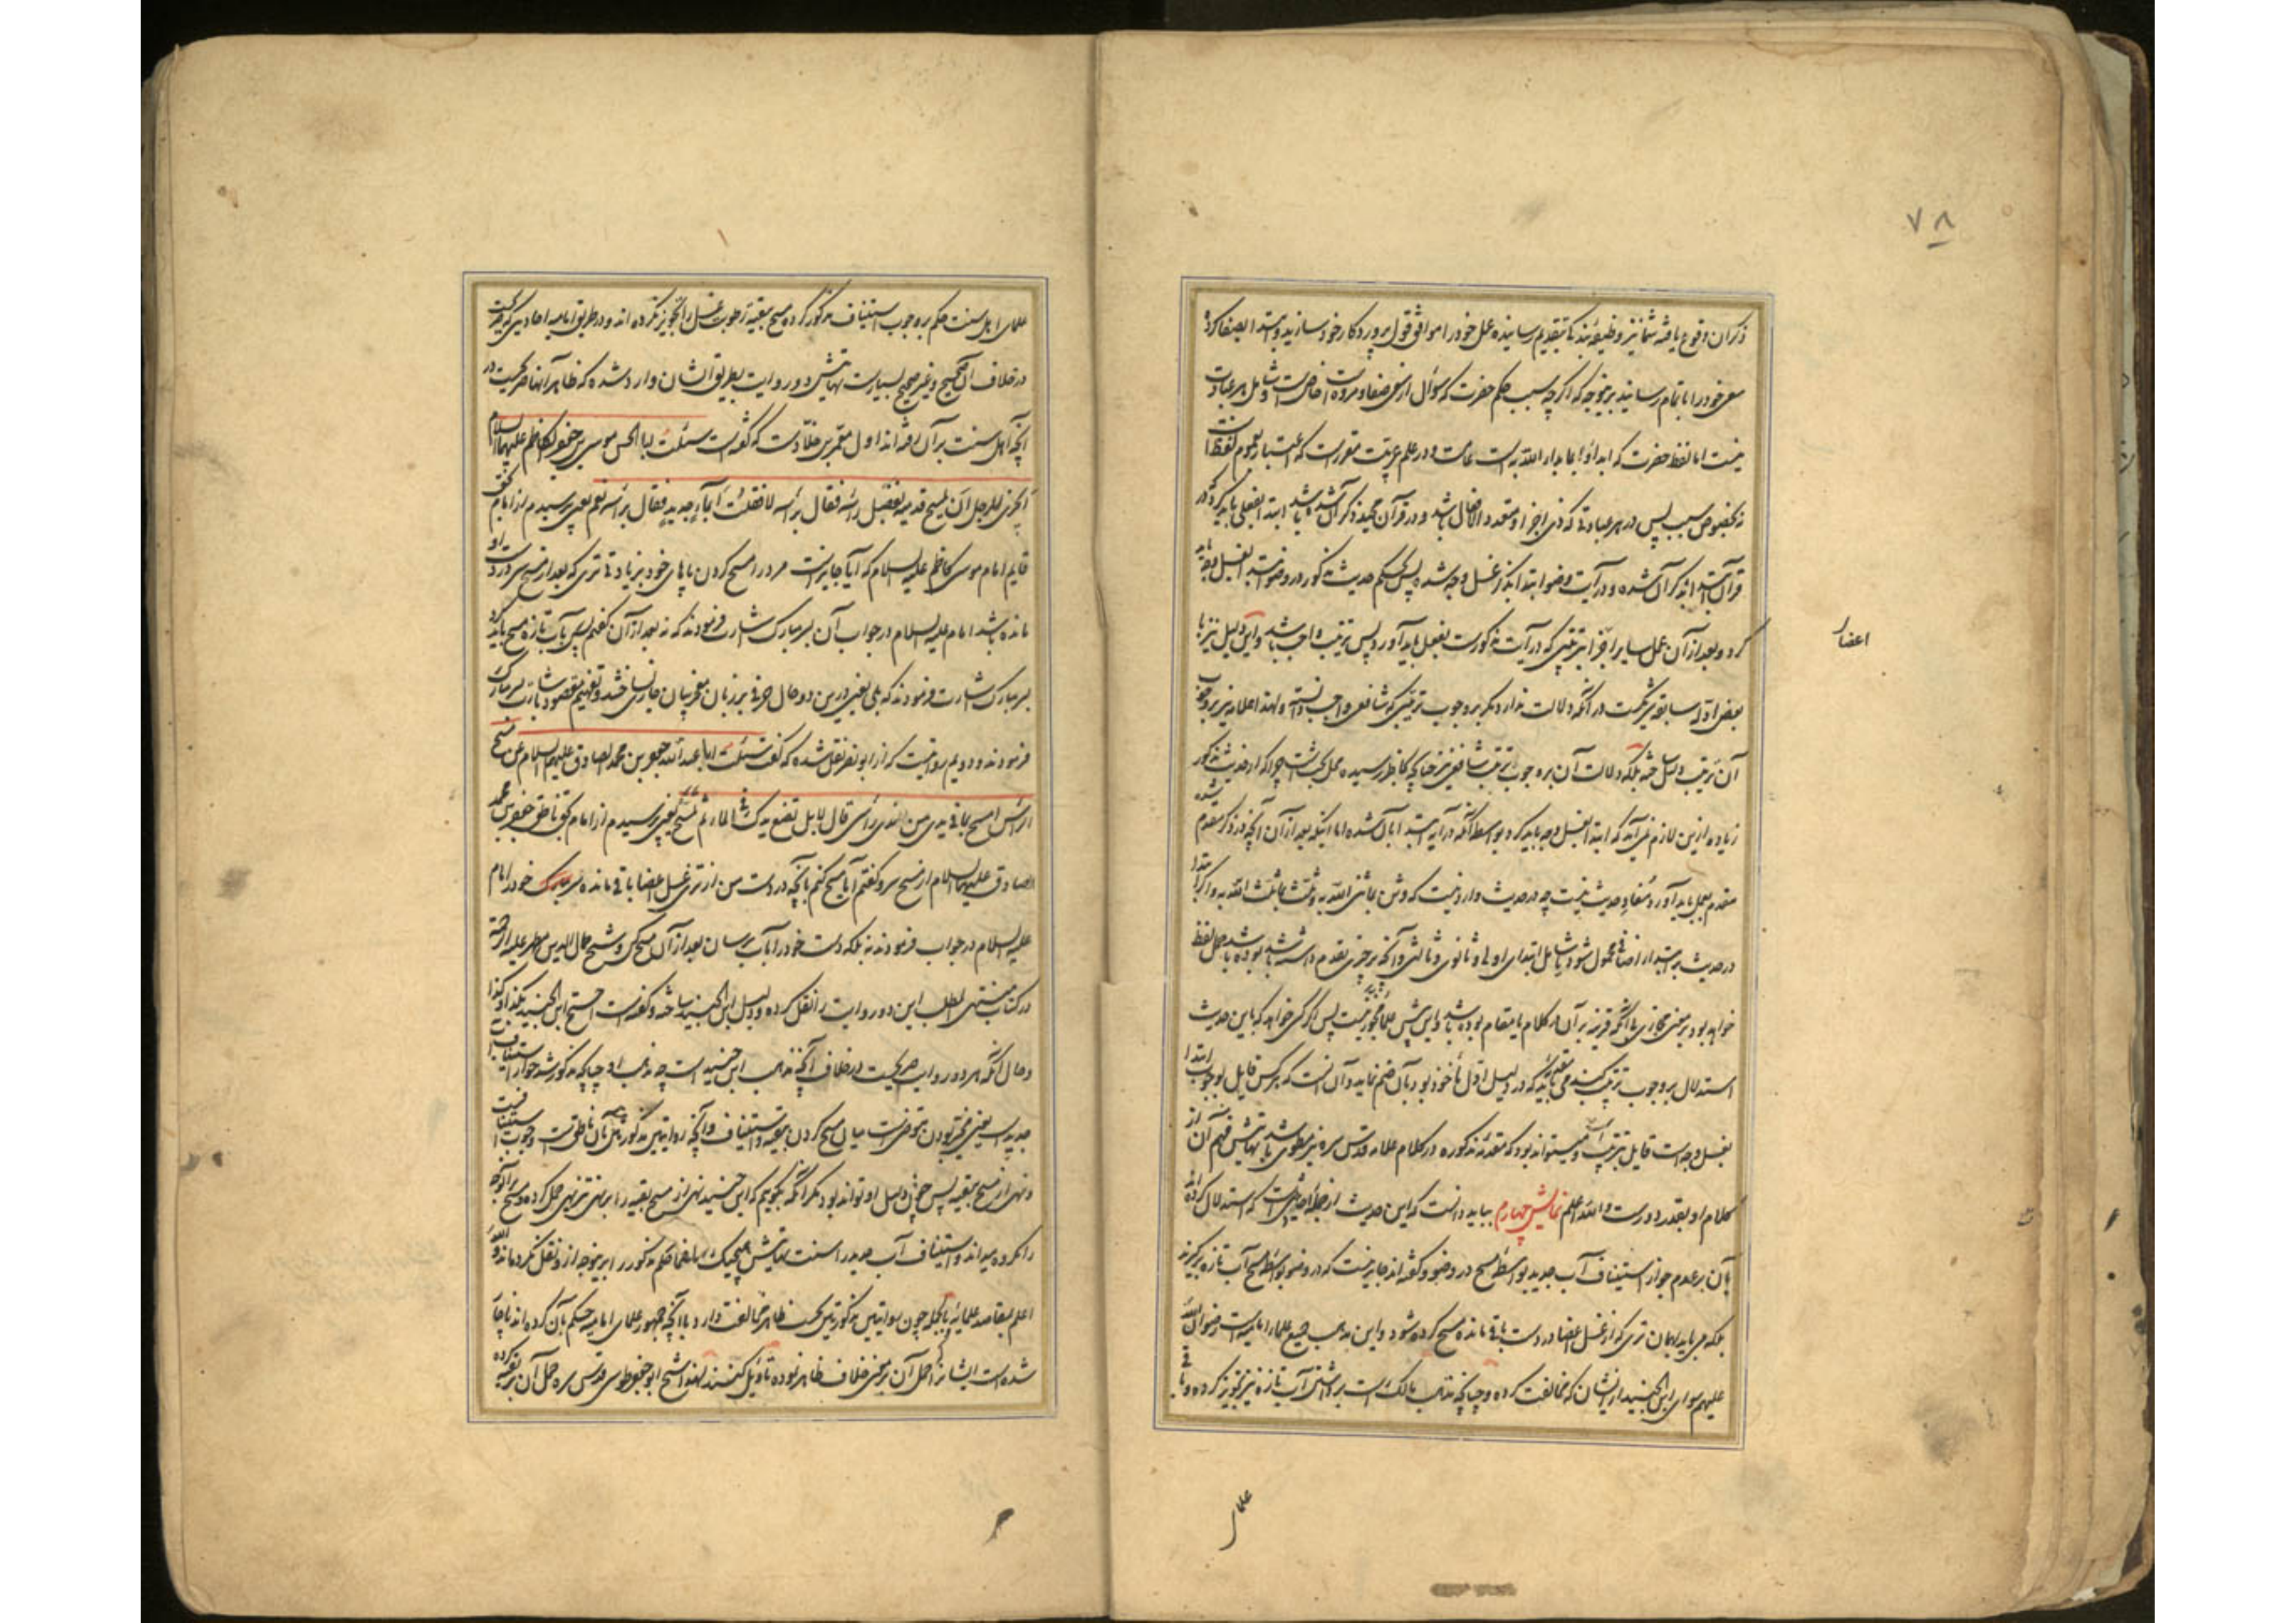 ٧٨
ذکر آن وقوع یافته شما نیز وظیفه‌اید که بتقدیم رسانیده عمل خود را موافق قول پروردکار خود سازید و ابتدا بصفا کرده
سعی خود را باتمام رسانید بنوجه که اکر چه سبب حکم حضرت که سؤال از سعی صفا و مروه است خاص است و شامل هر عبادت
نیست اما لفظ حضرت که ابداؤا بما بداء الله به است عامست و در علم عربیت مقررست که اعتبار بعموم لفظ است
نه بخصوص سبب پس در هر عبادتی که ذی اجزا و متعدد الافعال باشد و در قرآن مجید ذکر آن شده باشد ابتدا بفعلی باید کرد که در
قرآن ابتدا بذکر آن شده و در آیت وضو ابتدا بذکر غسل وجه شده پس بحکم حدیث مذکور در وضو ابتدا بغسل وجه باید
کرد و بعد از آن عمل سایر اجزا بترتیبی که در آیت مذکورست بفعل باید آورد پس ترتیب واجب باشد و این دلیل نیز با
اعضا
بعض ادله سابقه شریکست در آنکه دلالت ندارد مکر بر وجوب ترتیبی که شافعی واجب دانسته و لهذا علامه نیز بر وجوب
آن ترتیب دلیل ساخته بلکه دلالت آن بر وجوب ترتیب شافعی نیز چنانچه بخاطر رسیده محل بحث است چرا که از حدیث مذکور
زیاده ازین لازم نمی‌آید که ابتدا بغسل وجه باید کرد بواسطه آنکه در آیه ابتدا بآن شده اما اینکه بعد از آن آنچه در ذکر مقدم شده
مقدم بعمل باید آورد مفاد حدیث نیست چه در حدیث وارد نیست که وثن بما ثنی الله به وثلث بما ثلث الله به و اکر ابتدا
در حدیث بر ابتداء اضافی محمول شود شامل ابتدای اولی و ثانوی و ثالثی و آنکه بر چیزی تقدم داشته باشد بوده باشد حمل لفظ
خواهد بود بر معنی مجازی بی آنکه قرینه بر آن در کلام یا مقام بوده باشد و این پیش علما مجوز نیست پس اکر کسی خواهد که باین حدیث
استدلال بر وجوب ترتیب کند می‌باید مقدمه که در دلیل اول مأخوذ بود بآن ضم نماید و آن آنست که هر کس قایل بوجوب ابتدا
بغسل وجه است قایل بترتیب است و میتواند بود که مقدمه مذکوره در کلام علامه قدس سره نیز مطوی باشد نهایتش فهم آن از
کلام او بغایت دور است والله اعلم نمایش چهارم بباید دانست که این حدیث از جمله احادیثی است که استدلال کرده‌اند
بآن بر عدم جواز استیناف آب جدید بواسطه مسح در وضو و کفته‌اند جایز نیست که در وضو بواسطه مسح آب تازه برکیرند
بلکه می‌باید بهمان تری که از غسل اعضا در دست باقی مانده مسح کرده شود و این مذهب جمیع علماء امامیه است رضوان الله
علیهم سوای ابن الجنید از ایشان که مخالفت کرده و چنانچه مذهب مالک است برداشتن آب تازه نیز تجویز کرده و باقی
علما
علمای اهل سنت حکم بر وجوب استیناف مذکور کرده مسح ببقیه رطوبت غسل را تجویز نکرده‌اند و در طریق امامیه احادیثی که صریحست
در خلاف آن صحیح و غیر صحیح بسیارست نهایتش دو روایت بطریق ایشان وارد شده که ظاهر آنها صریحست در
آنچه اهل سنت بر آن رفته‌اند اول معمر بن خلاد است که کفته است سئلت ابا الحسن موسی بن جعفر الکاظم علیهما السلام
أیجزئ الرجل أن یمسح قدمیه بفضل رأسه فقال برأسه لا فقلت أبماء جدید فقال برأسه نعم یعنی پرسیدم از امام بحق
قایم امام موسی کاظم علیه السلام که آیا جایز است مرد را مسح کردن پایهای خود بزیادتی تری که بعد از مسح سر در دست او
مانده باشد امام علیه السلام در جواب آن بسر مبارک اشارت فرمودند که نه بعد از آن کفتم پس بآب تازه مسح باید کرد
بسر مبارک اشارت فرمودند که بلی یعنی درین دو حال حرفی بر زبان معجز بیان جاری نساخته و تفهیم مقصود باشارت بسر مبارک
فرمودند و دویم روایتیست که از ابو بصیر نقل شده که کفت سئلت ابا عبد الله جعفر بن محمد الصادق علیهم السلام عن مسح
الرأس امسح بما فی یدی من الندی رأسی قال لا بل تضع یدک فی الماء ثم تمسح یعنی پرسیدم از امام بحق ناطق جعفر بن محمد
الصادق علیهما السلام از مسح سر و کفتم آیا مسح کنم بآنچه در دست من از تری غسل اعضا باقی مانده سر خود را امام
علیه السلام در جواب فرمودند نه بلکه دست خود را بآب برسان بعد از آن مسح کن و شیخ جمال الدین مطهر علیه الرحمه
در کتاب منتهی المطلب این دو روایت را نقل کرده و دلیل ابن الجنید ساخته و کفته است احتج ابن الجنید بکذا و کذا
و حال آنکه هر دو روایت صریحست در خلاف آنچه مذهب ابن جنید است چه مذهب او چنانچه مذکور شد جواز استیناف آب
جدید است یعنی مخیر بودن متوضی است میان مسح کردن ببقیه و استیناف و آنچه روایتین مذکورتین بآن ناطق است وجوب استینافست
و نهی از مسح ببقیه پس چون دلیل او تواند بود مکر آنکه بکوییم که ابن جنید نهی از مسح ببقیه را بر نهی تنزیهی حمل کرده و مسح بر آنوجه
را مکروه میداند و استیناف آب جدید را سنت نهایتش هیچیک از علما حکم مذکور را برینوجه ازو نقل نکرده‌اند والله
اعلم بمقاصد علمائه بالجمله چون روایتین مذکورتین بحسب ظاهر مخالفت دارد با آنچه جمهور علمای امامیه حکم بآن کرده‌اند ناچار
شده است ایشانرا حمل آن بر معنی خلاف ظاهر نموده تاویل کنند لهذا شیخ ابو جعفر طوسی قدس سره حمل آن بر تقیه کرده